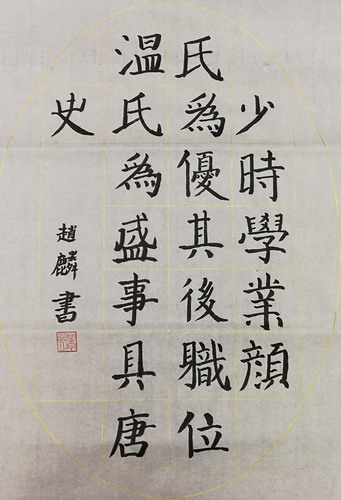 少時學業顔
氏為優其後職位
温氏為盛事具唐
史
趙麟書